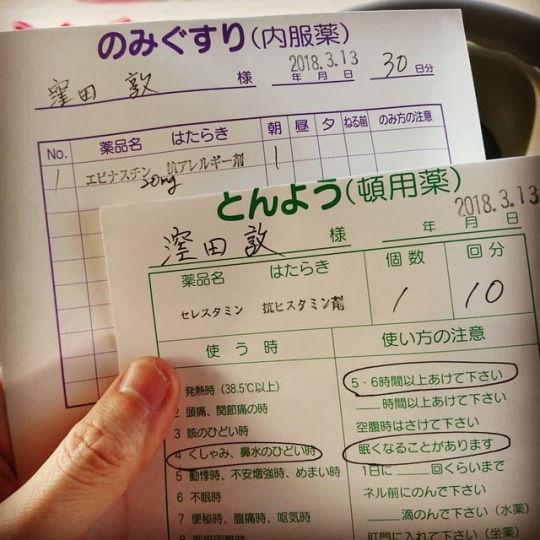 のみぐすり(内服薬)
2018.3.13
窪田 敦 様 年 月 日 30日分
No. 薬品名 はたらき 朝 昼 夕 ねる前 のみ方の注意
1 エピナスチン 抗アレルギー剤 1
20mg
とんよう(頓用薬)
2018.3.13
窪田 敦 様 年 月 日
薬品名 はたらき 個数 回分
セレスタミン 抗ヒスタミン剤 1 10
使う時 使い方の注意
発熱時(38.5℃以上) 5・6時間以上あけて下さい
2 頭痛、関節痛の時 時間以上あけて下さい
3 咳のひどい時 空腹時はさけて下さい
4 くしゃみ、鼻水のひどい時 眠くなることがあります
5 動悸時、不安増強時、めまい時 1日に 回くらいまで
6 不眠時 ネル前にのんで下さい
7 便秘時、腹痛時、呕気時 滴のんで下さい(水薬)
肛門に入れて下さい(坐薬)